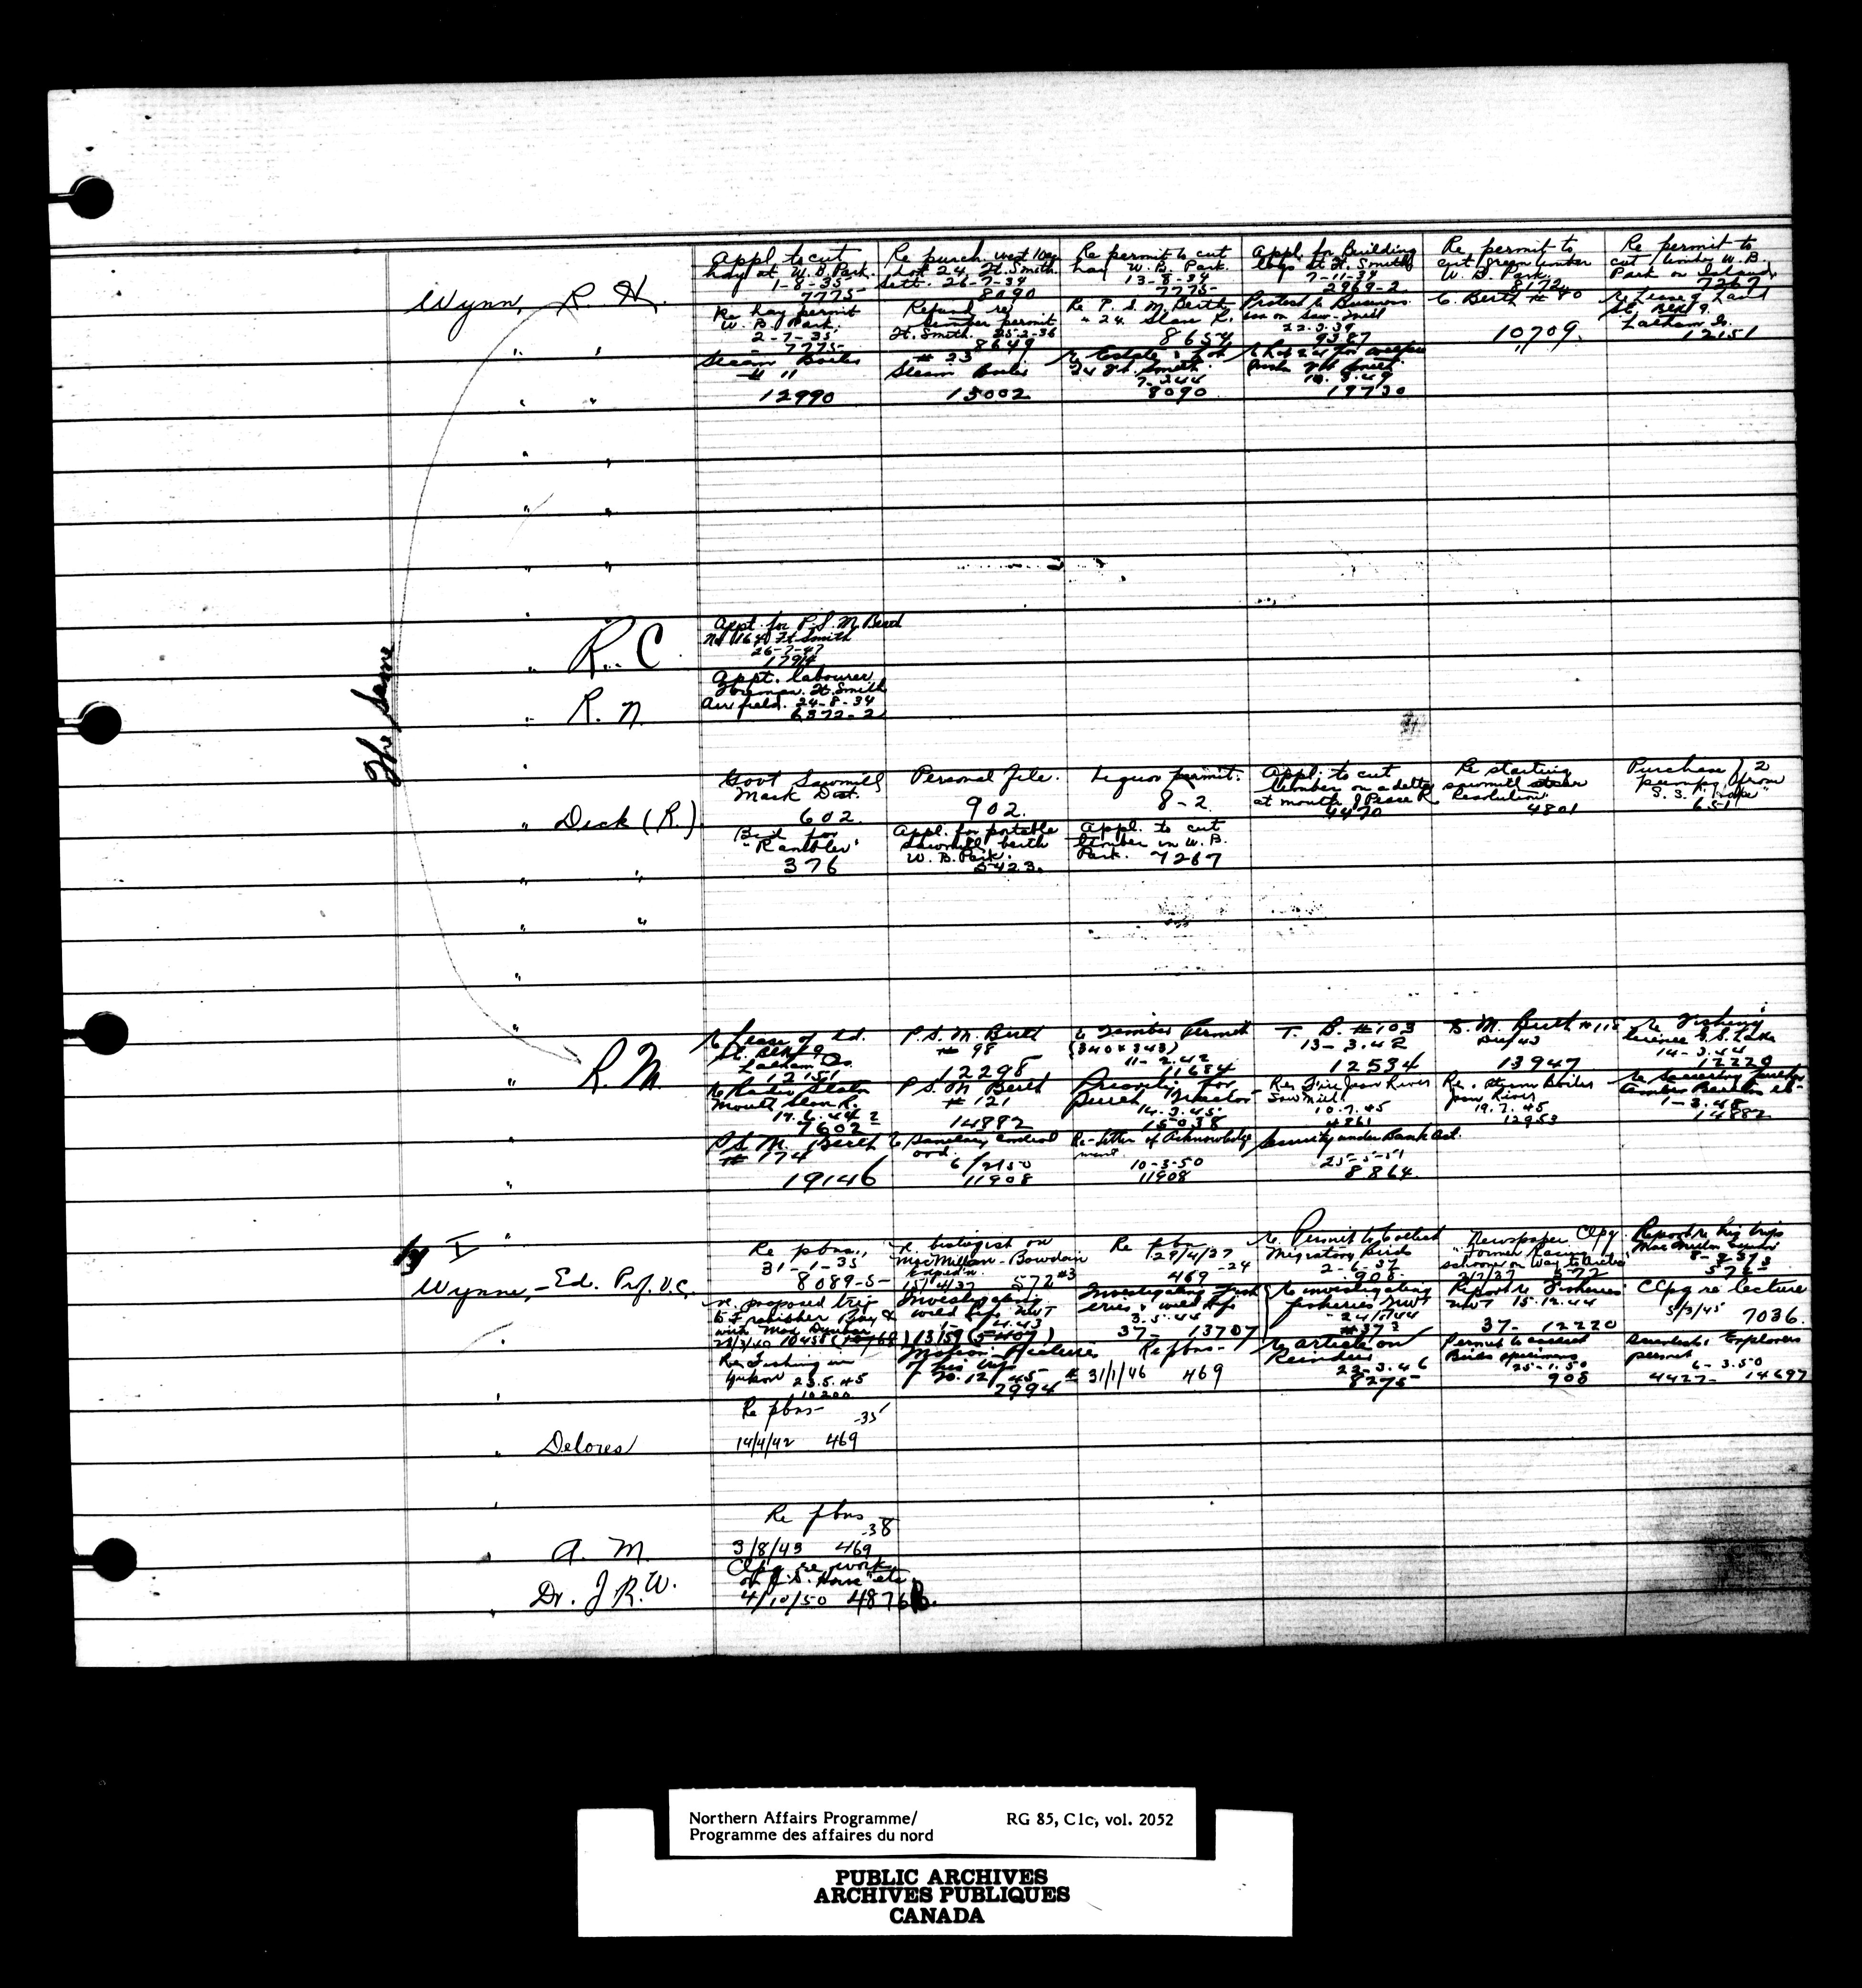 Wynn, R. H.
Appl to cut
hay at W. B. Park.
1-8-35
7775-
Re purch. west
Lot 24, Ft. Smith
Sett. 26-7-34
8090
Re permit to cut
hay W. B. Park.
13-8-34
7775-
Appl. for Building
logs at Ft. Smith
7-11-34
2969-2.
Re permit to
cut green timber
W. B. Park.
8172
Re permit to
cut timber W. B.
Park on Island,
7267
" "
Re hay permit
W. B. Park.
2-7-35
7775-
Refund re
timber permit
Ft. Smith. 25-2-36
8649
Re P. S. M. Berth
" 24. Slave R.
8654
Protest to Business
tax on Saw-mill
22-3-39
9387
T. Berth # 80
10709.
re Lease of Land
St. Blk 9.
Latham Is.
12151
" "
Steam Boiler
# 11
12990
# 23
Steam Boiler
15002
re Estate & Lot
24 Ft. Smith
7-3-44
8090
10.3.49
19730
" "
" "
" "
The Same
" R. C.
Appl. for P. S. M. Berth
Ft Smith
26-7-47
" R. N.
Appt. labourer
Foreman. Ft. Smith
Air field. 24-8-34
6372-2
" Dick (R.)
Govt Sawmill
Mack Dist.
602.
Personal file.
902.
Liquor permit.
8-2.
Appl. to cut
timber on a delta
at mouth of Peace R.
4470
Re starting
sawmill
Resolution.
4801
Purchase of 2
pumps from
S. S.
651
" "
Bid for
"Rambler"
376
Appl. for portable
Sawmill berth
W. B. Park.
5423.
Appl. to cut
timber in W. B.
Park. 7267
" "
"
" R. M.
re Lease of Ld.
St. Blk 9
Latham Is.
12151
P. S. M. Berth
# 98
12298
re Timber Permit
(340 & 343)
11-2.42
11684
T. B. # 103
13-3.42
12594
S. M. Berth # 118
13947
re Fishing
licence G. S. Lake
14-3.44
12220
re Radio Station
Mouth Slave R.
17.6.44
7602
P. S. M Berth
# 121
14882
Priority for
purch. Tractor
14.3.45
15038
Re: Fire Jean River
Saw Mill
10.7.45
4861
Re: Steam Boiler
Jean River
19.7.45
12953
1-3.48
14882
P. S. M. Berth
# 174
19146
re Sanitary Control
ord.
6/2/50
11908
Re-letter of Acknowledge
ment
10-3-50
11908
Security under Bank Act.
25-5-51
8864.
I
Wynne, - Ed. Prof. V. C.
Re pbns.,
31-1-35
8089-5-
re. biologist on
MacMillan-Bowdoin
Exped'n.
15/4/37 572 #3
Re pbn
29/4/37
-24
469
re Permit to Collect
Migratory Birds
2-6-37
908-
Newspaper Clpg
"Former Racing
schooner on Way to Arctic"
2/7/37 572
Report re his trips
8-9-37
re. proposed trip
to Frobisher Bay &
with Max Dunbar
Investigating
wild life NWT
1- /4.43
13159 (5409)
Investigating Fish
eries & wild life
3.5.44
37- 13707
re investigating
fisheries NWT
24/7/44
# 37
Report re Fisheries
NWT 15.12.44
37- 12220
Clpg re lecture
5/3/45 7036.
Re: Fishing in
Yukon 23.5.45
10200
Motion Pictures
of his trips
20.12/45
2994
Re pbns-
31/1/46 469
re article on
Reindeer
22-3.46
8275-
Permit to collect
Birds specimens
25-1-50
908
Scientists & Explorers
permit
6-3.50
4427- 14697
" Delores
Re pbns-
-35
14/4/42 469
" A. M.
Re pbns
-38
3/8/43 469
" Dr. J. R. W.
Clpg re work
etc.
4/10/50 4876 B.
Northern Affairs Programme/
Programme des affaires du nord
RG 85, C1c, vol. 2052
PUBLIC ARCHIVES
ARCHIVES PUBLIQUES
CANADA